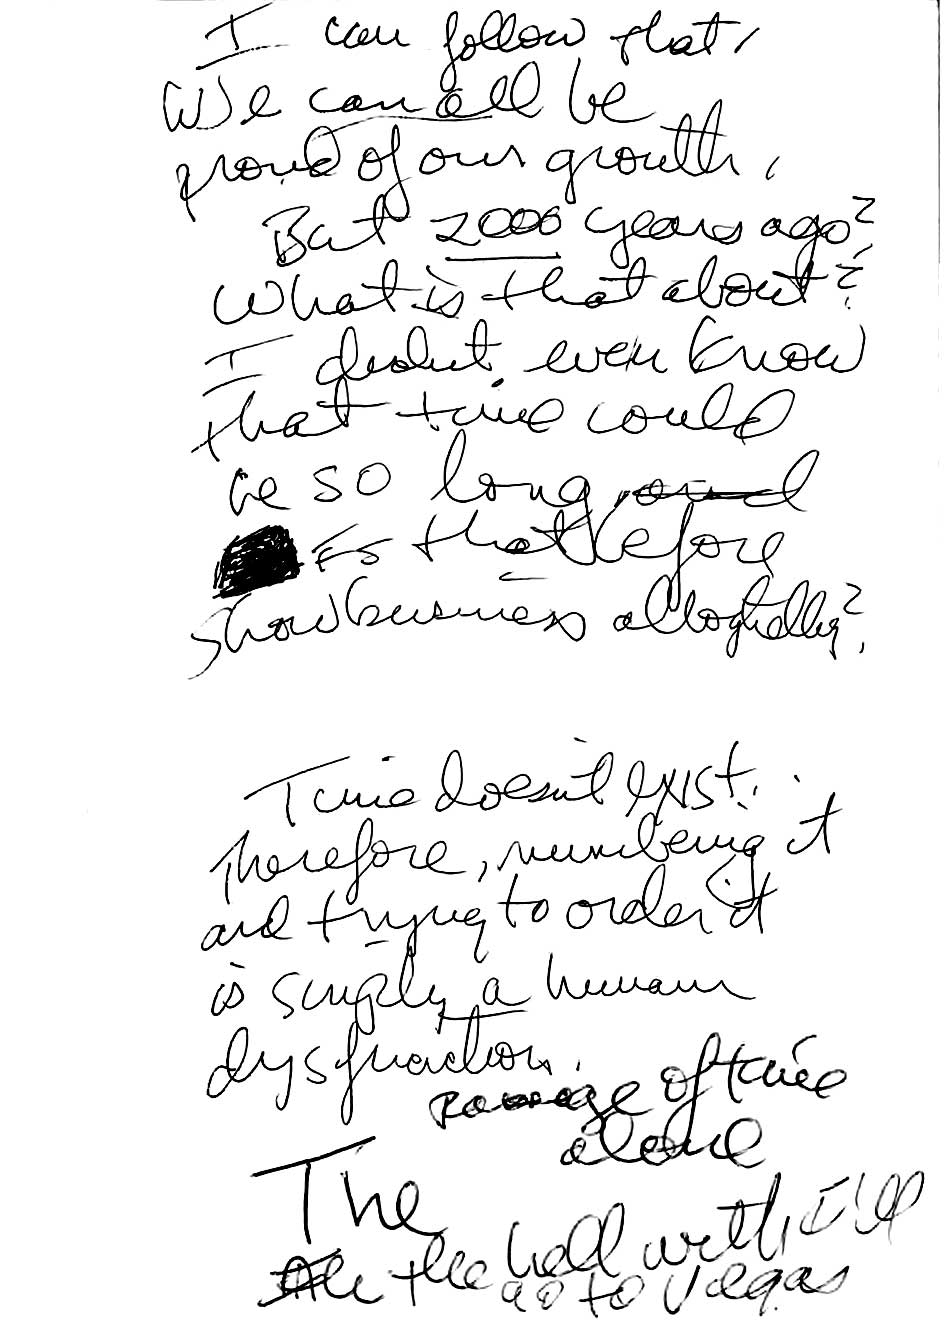 I can follow that,
We can all be
proud of our growth,
But 2000 years ago?
What is that about?
I didn't even know
that time could
be so long, and
Is that before
showbusiness alltogtelly?
Time doesn't exist.
Therefore, numbering it
and trying to order it
is simply a human
dysfunction.
of time
alone
The
the hell with, I'll
go to Vegas